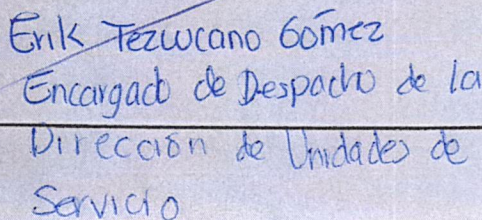 Erik Tezucano Gómez
Encargado de Despacho de la
Dirección de Unidades de
Servicio